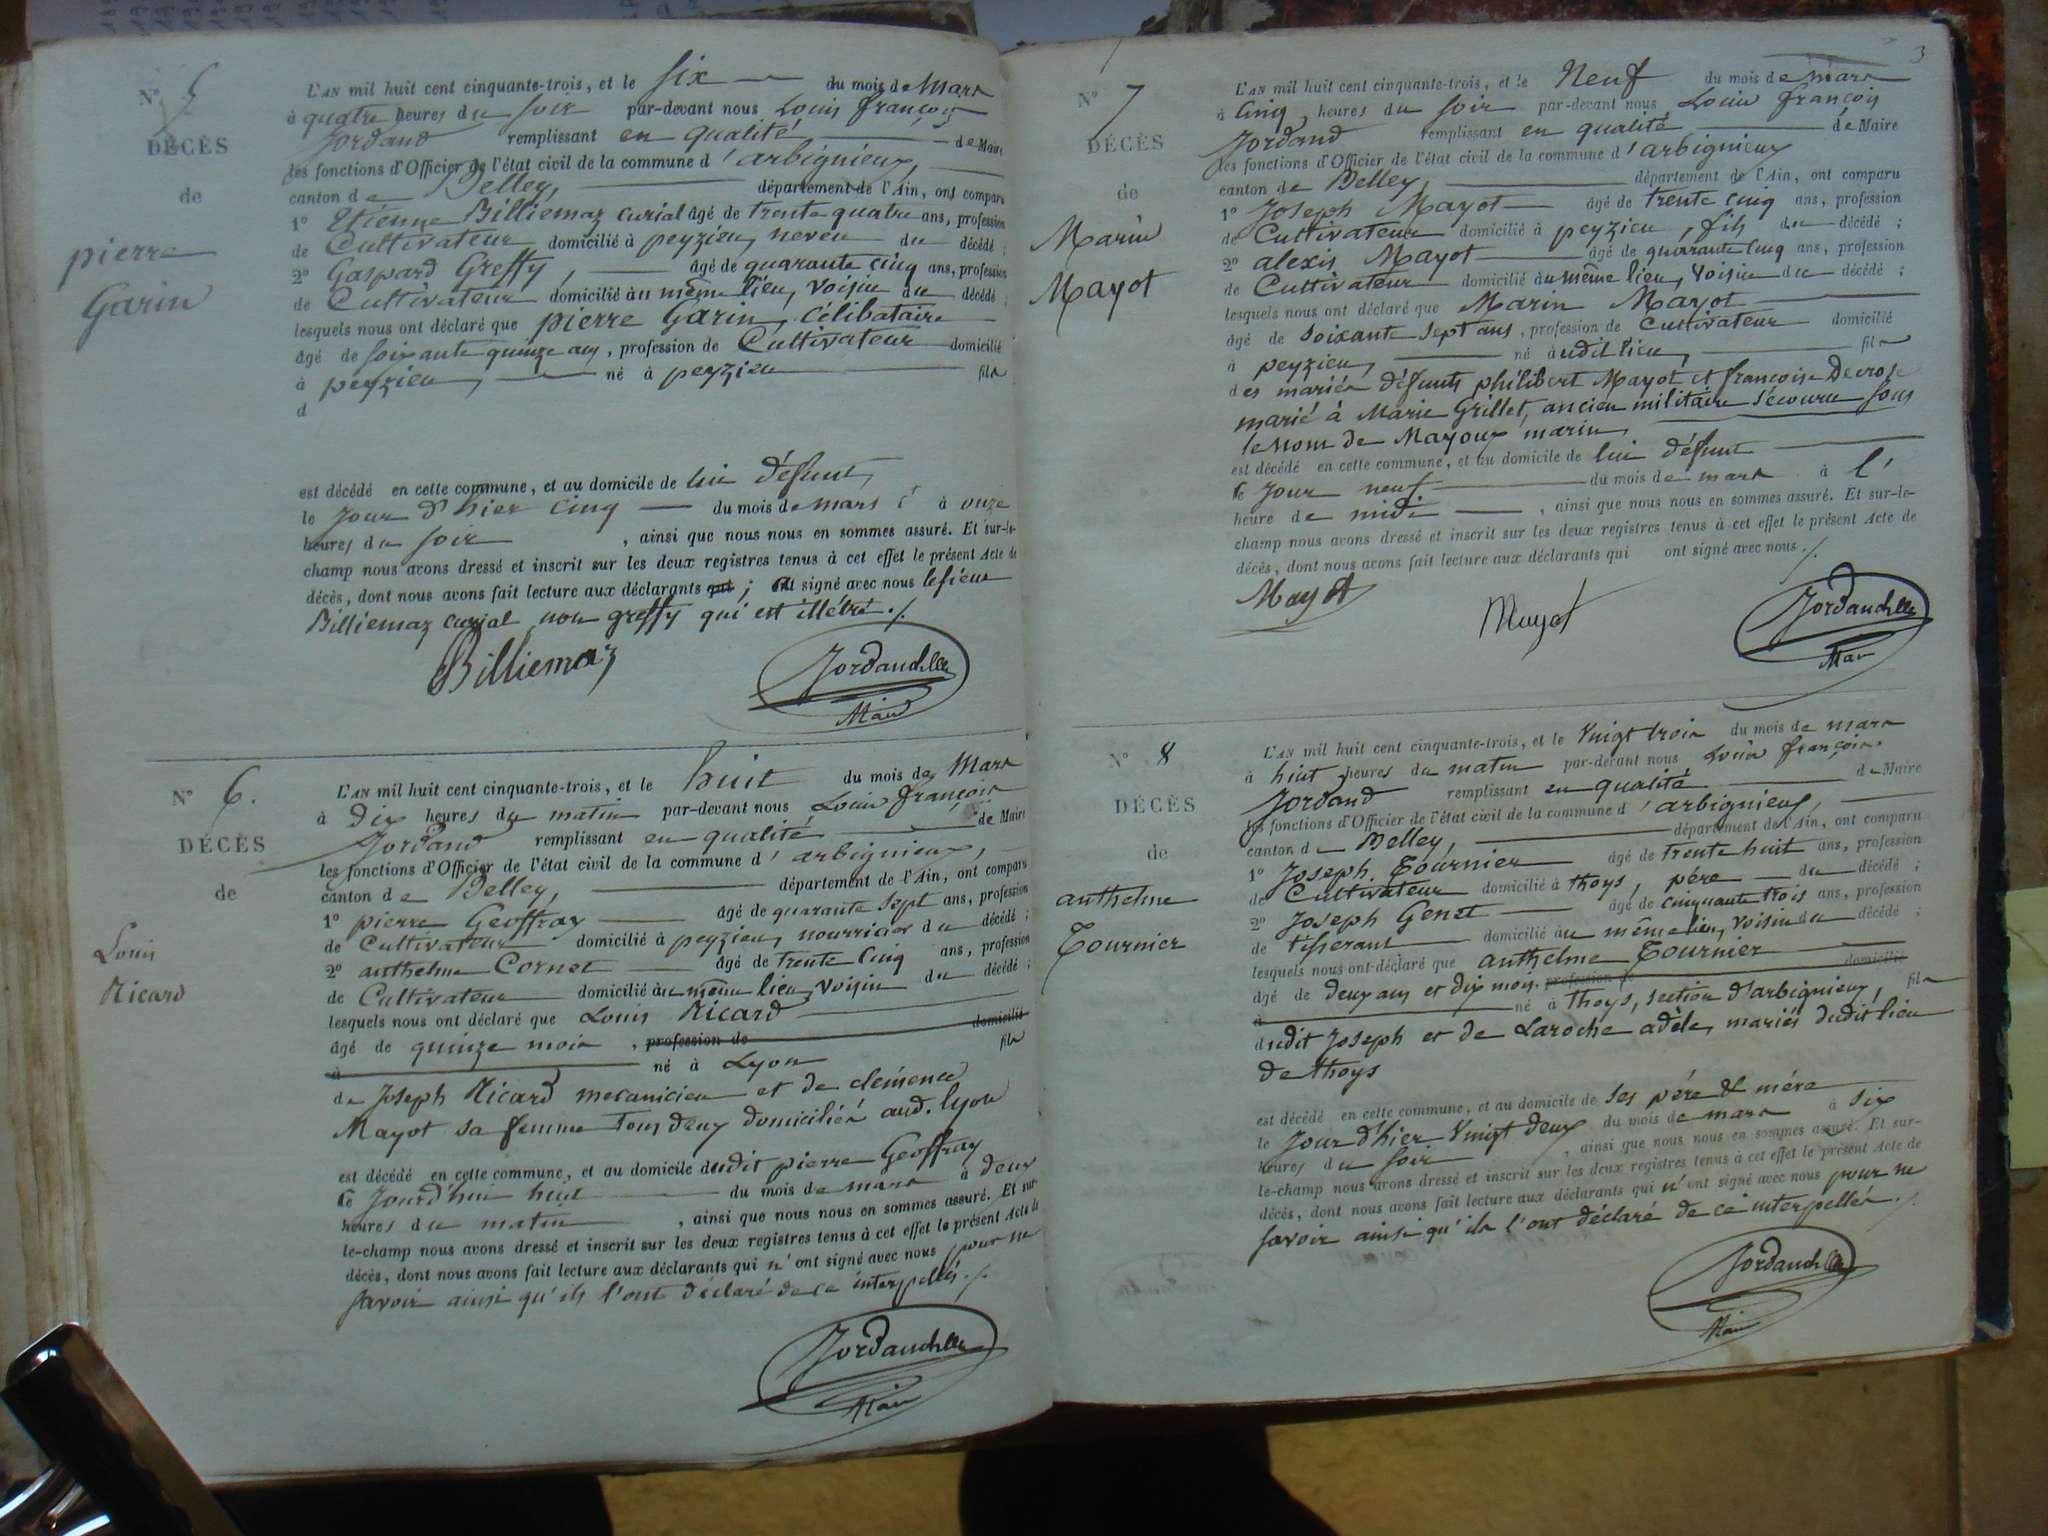 N° 5
DÉCÈS
de
pierre
Garin
L'AN mil huit cent cinquante-trois, et le six du mois de Mars
à quatre heures du soir par-devant nous Louis françois
Jordand remplissant en qualité de Maire
les fonctions d'Officier de l'état civil de la commune d'arbignieux,
canton de Belley, département de l'Ain, ont comparu
1° Etienne Billiemaz curial âgé de trente quatre ans, profession
de Cultivateur domicilié à peyzieu, neveu du décédé ;
2° Gaspard Greffy, âgé de quarante cinq ans, profession
de Cultivateur domicilié au même lieu, voisin du décédé ;
lesquels nous ont déclaré que pierre Garin, célibataire
âgé de soixante quinze ans, profession de Cultivateur domicilié
à peyzieu, né à peyzieu fils
d
est décédé en cette commune, et au domicile de lui défunt,
le jour d'hier cinq du mois de mars à onze
heures du soir, ainsi que nous nous en sommes assuré. Et sur-le-
champ nous avons dressé et inscrit sur les deux registres tenus à cet effet le présent Acte de
décès, dont nous avons fait lecture aux déclarants qui ; ont signé avec nous le sieur
Billiemaz curial non greffy qui est illétré ./.
Billiemaz
Jordand
Maire
N° 6.
DÉCÈS
de
Louis
Ricard
L'AN mil huit cent cinquante-trois, et le huit du mois de Mars
à Dix heures du matin par-devant nous Louis françois
Jordand remplissant en qualité de Maire
les fonctions d'Officier de l'état civil de la commune d'arbignieux,
canton de Belley, département de l'Ain, ont comparu
1° pierre Geoffray âgé de quarante sept ans, profession
de Cultivateur domicilié à peyzieu, nourricier du décédé ;
2° anthelme Cornet âgé de trente cinq ans, profession
de Cultivateur domicilié au même lieu, voisin du décédé ;
lesquels nous ont déclaré que Louis Ricard
âgé de quinze mois, profession de domicilié
à né à Lyon fils
de Joseph Ricard mecanicien et de clémence
Mayot sa femme tous deux domiciliés aud. lyon
est décédé en cette commune, et au domicile dudit pierre Geoffray
Ce jourd'hui huit du mois de mars à deux
heures du matin, ainsi que nous nous en sommes assuré. Et sur-
le-champ nous avons dressé et inscrit sur les deux registres tenus à cet effet le présent Acte de
décès, dont nous avons fait lecture aux déclarants qui n'ont signé avec nous pour ne
savoir ainsi qu'ils l'ont déclaré de ce interpellés ./.
Jordand
Maire
3
N° 7
DÉCÈS
de
Marin
Mayot
L'AN mil huit cent cinquante-trois, et le Neuf du mois de mars
à Cinq heures du soir par-devant nous Louis françois
Jordand remplissant en qualité de Maire
les fonctions d'Officier de l'état civil de la commune d'arbignieux
canton de Belley, département de l'Ain, ont comparu
1° Joseph Mayot âgé de trente cinq ans, profession
de Cultivateur domicilié à peyzieu, fils du décédé ;
2° alexis Mayot âgé de quarante cinq ans, profession
de Cultivateur domicilié au même lieu, voisin du décédé ;
lesquels nous ont déclaré que Marin Mayot
âgé de soixante sept ans, profession de Cultivateur domicilié
à peyzieu, né audit lieu, fils
des mariés défunts philibert Mayot et francoise Decrose
marié à Marie Grillet, ancien militaire sécouru sous
le nom de Mayoux marin,
est décédé en cette commune, et au domicile de lui défunt
le jour neuf du mois de mars à l'
heure de midi, ainsi que nous nous en sommes assuré. Et sur-le-
champ nous avons dressé et inscrit sur les deux registres tenus à cet effet le présent Acte de
décès, dont nous avons fait lecture aux déclarants qui ont signé avec nous ./.
Mayot
Mayot
Jordand
Maire
N° 8
DÉCÈS
de
anthelme
Tournier
L'AN mil huit cent cinquante-trois, et le vingt trois du mois de mars
à huit heures du matin par-devant nous Louis françois
Jordand remplissant en qualité de Maire
les fonctions d'Officier de l'état civil de la commune d'arbignieux,
canton de Belley, département de l'Ain, ont comparu
1° Joseph Tournier âgé de trente huit ans, profession
de Cultivateur domicilié à thoys, père du décédé ;
2° Joseph Genet âgé de cinquante trois ans, profession
de tisserant domicilié au même lieu, voisin du décédé ;
lesquels nous ont déclaré que anthelme Tournier
âgé de deux ans et dix mois, profession de domicilié
à né à thoys, section d'arbignieux, fils
dudit Joseph et de Laroche adèle, mariés dudit lieu
de thoys
est décédé en cette commune, et au domicile de ses père & mére
le jour d'hier vingt deux du mois de mars à six
heures du soir, ainsi que nous nous en sommes assuré. Et sur-
le-champ nous avons dressé et inscrit sur les deux registres tenus à cet effet le présent Acte de
décès, dont nous avons fait lecture aux déclarants qui n'ont signé avec nous pour ne
savoir ainsi qu'ils l'ont déclaré de ce interpellés ./.
Jordand
Maire